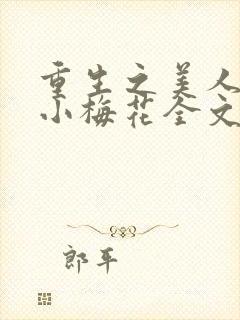 重生之美人
小梅花全文
郎平